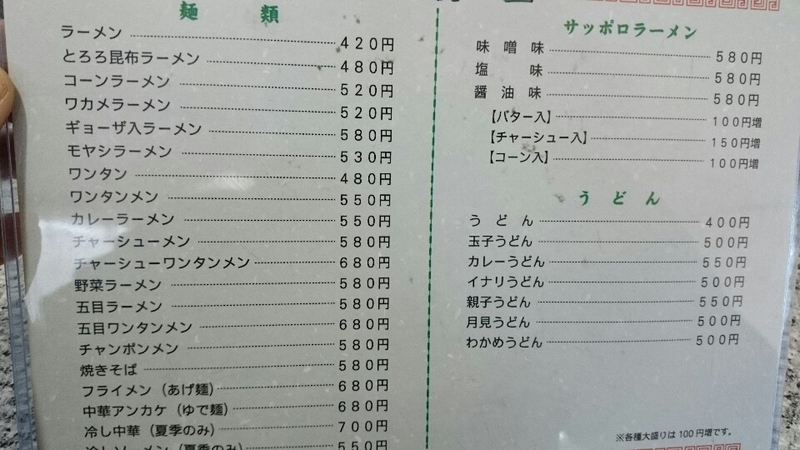 麺類
ラーメン 420円
とろろ昆布ラーメン 480円
コーンラーメン 520円
ワカメラーメン 520円
ギョーザ入ラーメン 580円
モヤシラーメン 530円
ワンタン 480円
ワンタンメン 550円
カレーラーメン 550円
チャーシューメン 580円
チャーシューワンタンメン 680円
野菜ラーメン 580円
五目ラーメン 580円
五目ワンタンメン 680円
チャンポンメン 580円
焼きそば 580円
フライメン（あげ麺） 680円
中華アンカケ（ゆで麺） 680円
冷し中華（夏季のみ） 700円
冷しソーメン（夏季のみ） 550円
サッポロラーメン
味噌味 580円
塩味 580円
醤油味 580円
【バター入】 100円増
【チャーシュー入】 150円増
【コーン入】 100円増
うどん
うどん 400円
玉子うどん 500円
カレーうどん 550円
イナリうどん 500円
親子うどん 550円
月見うどん 500円
わかめうどん 500円
※各種大盛りは100円増です。